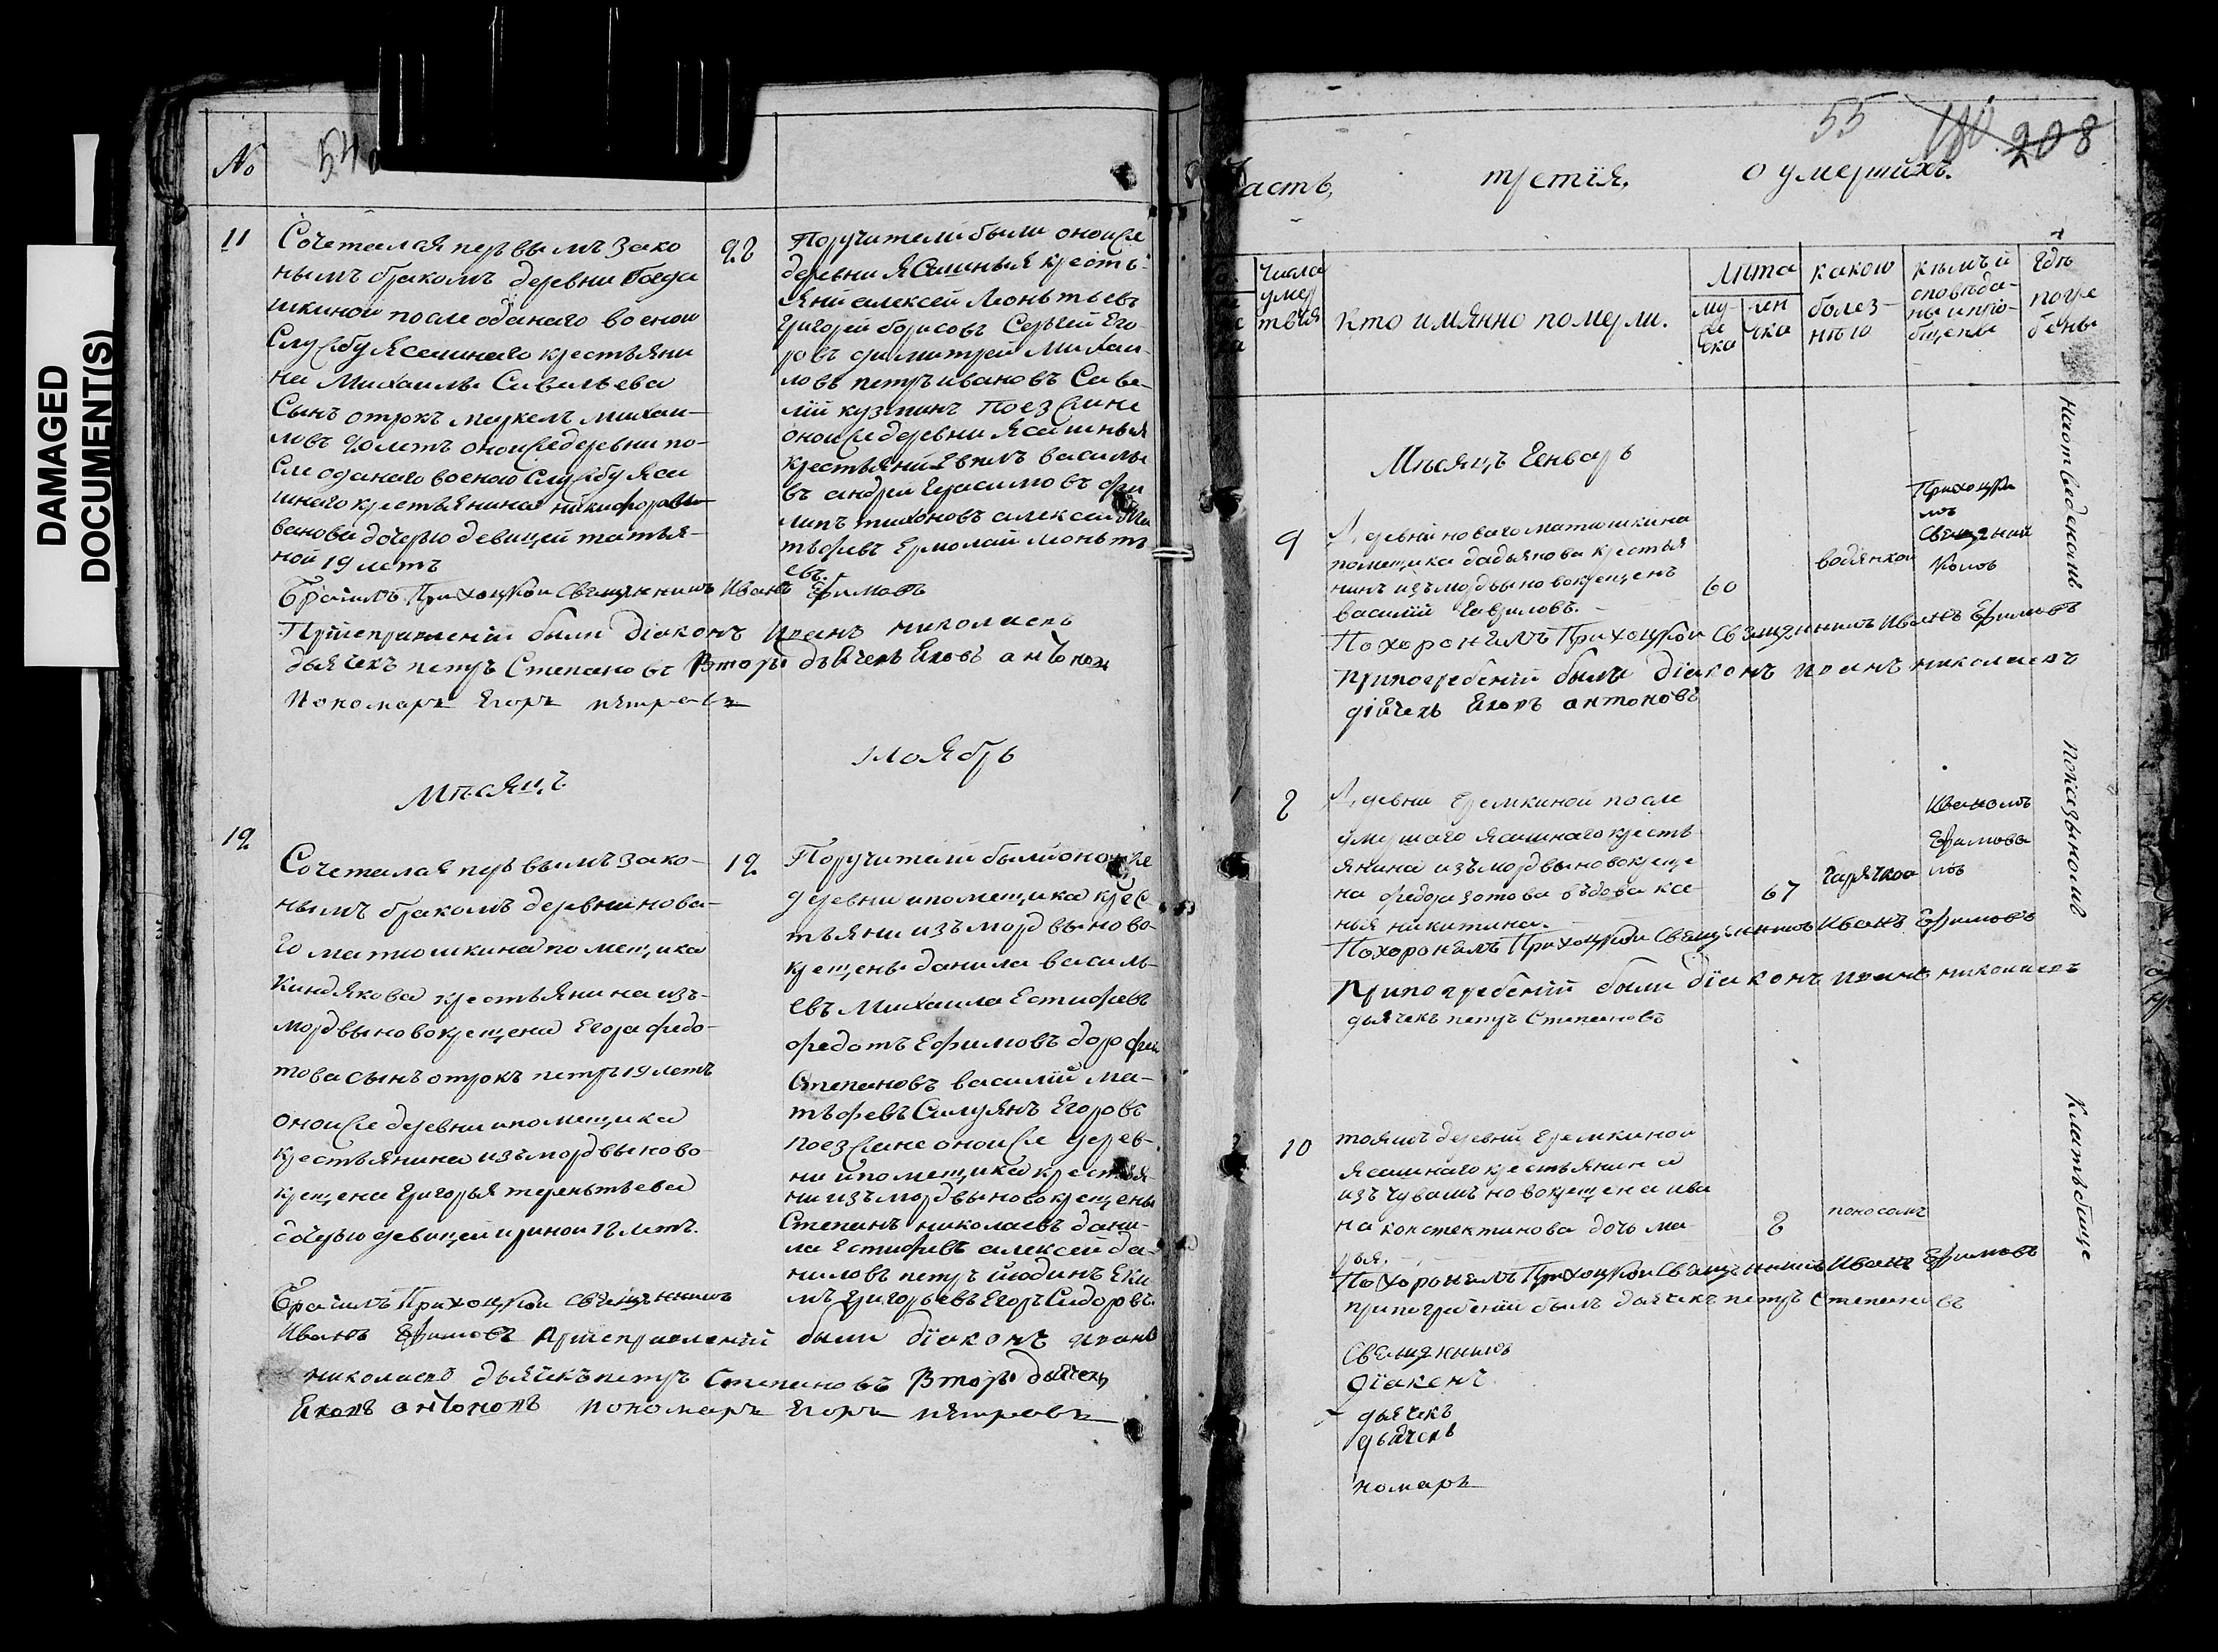 DAMAGED
DOCUMENT(S)
№
54
11
Сочетался первымъ зако
нымъ бракомъ деревни богда
шкиной после оданаго военои
службу ясашнаго крестьяни
на Михаилы Савельева
Сынъ отрокъ меркелъ михаи-
ловъ 20 летъ оной же деревни по-
сле оданаго военою службу яса
шнаго крестьянина никифора и-
ванова дочерью девицей татья-
ной 19 летъ
22
Поручители были оной же
деревни ясашныя кресть-
яни алексей леонтьевъ
григорей борисовъ Сергей Его-
ровъ димитрей Михаи-
ловъ петръ ивановъ Саве-
лiй кузминъ Поезжане
оной же деревни ясашныя
крестьяни Евтихъ василье
въ андрей Герасимовъ фи
липъ тихоновъ алексей
тьфевъ Ермолай леонть
евъ.
Брачилъ Приходской Священникъ Иванъ Ефимовъ
Приисправленiи были дiаконъ Иванъ николаевъ
дьячекъ петръ Степановъ Вторы дьячекъ Яковъ антонов
Пономарь Егоръ петровъ
Мѣсяцъ
ноябрь
12
Сочетался первымъ зако-
нымъ бракомъ деревни нова-
го матюшкина помещика
Киндякова крестьянина изъ
мордвы новокрещена Егора федо-
това сынъ отрокъ петръ 19 летъ
оной же деревни ипомещика
крестьянина изъ мордвы ново-
крещена григорья терентьева
дочерью девицей ириной 18 летъ.
12
Поручители были оной же
деревни ипомещика крес-
тьяни изъ мордвы ново-
крещены данила василь-
евъ Михаила Естифевъ
федотъ Ефимовъ дорофей
Степановъ василiй ма-
тьфевъ Силуянъ Егоровъ
поезжане оной же дерев-
ни ипомещика крестья-
ни изъ мордвы новокрещены
Степанъ николаевъ дани-
ла Естифевъ алексей да-
ниловъ петръ июдинъ Еки
мъ григорьевъ Егоръ Сидоровъ.
Брачилъ Приходской священникъ
Иванъ Ефимовъ Приисправленiи были дiаконъ Иванъ
николаевъ дьячекъ петръ Степановъ Вторы дьячекъ
Яковъ антоновъ пономарь Егоръ петровъ
55
180
208
асть, третiя, о умершихъ.
Числа
умер
твiя
Кто имянно померли.
Лѣта
му-
же
ска
жен
ска
какою
болез-
нiю
кѣмъ и
споведа-
ны и прiо-
бщены
Гдѣ
погре
бены
Мѣсяцъ Генварь
9
Деревни новаго матюшкина
помещика дадьянова крестья
нинъ изъ мордвы новокрещенъ
василiй Гавриловъ.
60
водянкой
Приходски
мъ
Священни
комъ
Похоронилъ Приходской Священникъ Иванъ Ефимовъ
Припогребенiи были дiаконъ Иванъ николаевъ
дьячекъ Яковъ антоновъ
2
Деревни Еремкиной после
умершаго ясашнаго кресть
янина изъ мордвы новокреще
на федора зотова вьдова ксе-
нья никитина.
67
гарячкой
Иваномъ
Ефимовы
мъ
Похоронилъ Приходской Священникъ Иванъ Ефимовъ
Припогребенiи были дiаконъ Иванъ николаевъ
дьячекъ петръ Степановъ
10
тояжъ деревни Еремкиной
ясашнаго крестьянина
изъ чувашъ новокрещена ива
на констентинова дочь ма-
рья.
2
поносомъ
Похоронилъ Приходской Священникъ Иванъ Ефимовъ
припогребенiи былъ дьячекъ петръ Степановъ
Священникъ
Дiаконъ
дьячекъ
дьячекъ
номарь
наотведеномъ показыномъ Кладъбище